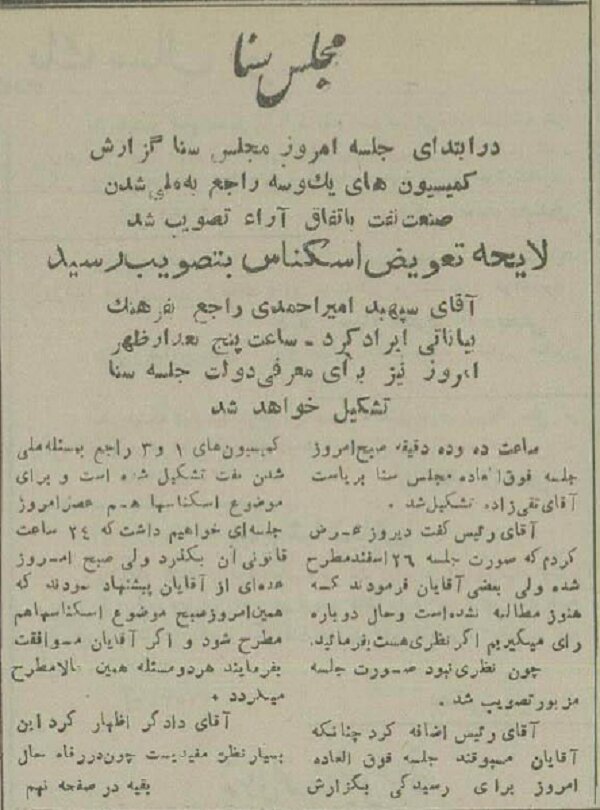 مجلس سنا
در ابتدای جلسه امروز مجلس سنا گزارش
کمیسیون های یك و سه راجع به ملی شدن
صنعت نفت باتفاق آراء تصویب شد
لایحه تعویض اسکناس بتصویب رسید
آقای سپهبد امیراحمدی راجع بفرهنك
بیاناتی ایراد کرد ـ ساعت پنج بعدازظهر
امروز نیز برای معرفی دولت جلسه سنا
تشکیل خواهد شد
ساعت ده وده دقیقه صبح امروز
جلسه فوق العاده مجلس سنا بریاست
آقای تقی زاده تشکیل شد .
آقای رئیس گفت دیروز عرض
کردم که صورت جلسه ۲۶ اسفند مطرح
شده ولی بعضی آقایان فرمودند که
هنوز مطالبه نشده است وحال دوباره
رای میگیریم اگر نظری هست بفرمائید.
چون نظری نبود صورت جلسه
مزبور تصویب شد .
آقای رئیس اضافه کرد چنانکه
آقایان مسبوقند جلسه فوق العاده
امروز برای رسیدگی بگزارش
کمیسیون های ۱ و ۳ راجع بمسئله ملی
شدن نفت تشکیل شده است و برای
موضوع اسکناسها هم عصر امروز
جلسه ای خواهیم داشت که ۲۴ ساعت
قانونی آن بگذرد ولی صبح امروز
عده ای از آقایان پیشنهاد نمودند که
همین امروز صبح موضوع اسکناسها هم
مطرح شود و اگر آقایان موافقت
بفرمایند هردو مسئله همین حالا مطرح
میگردد .
آقای دادگر اظهار کرد این
بسیار نظر مفیدیست چون در رفاه حال
بقیه در صفحه نهم